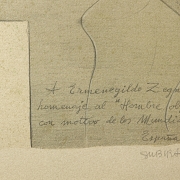 A Ermenegildo Zegn
homenaje al "Hombre
con motivo de los Mundia
España
SUBIRA